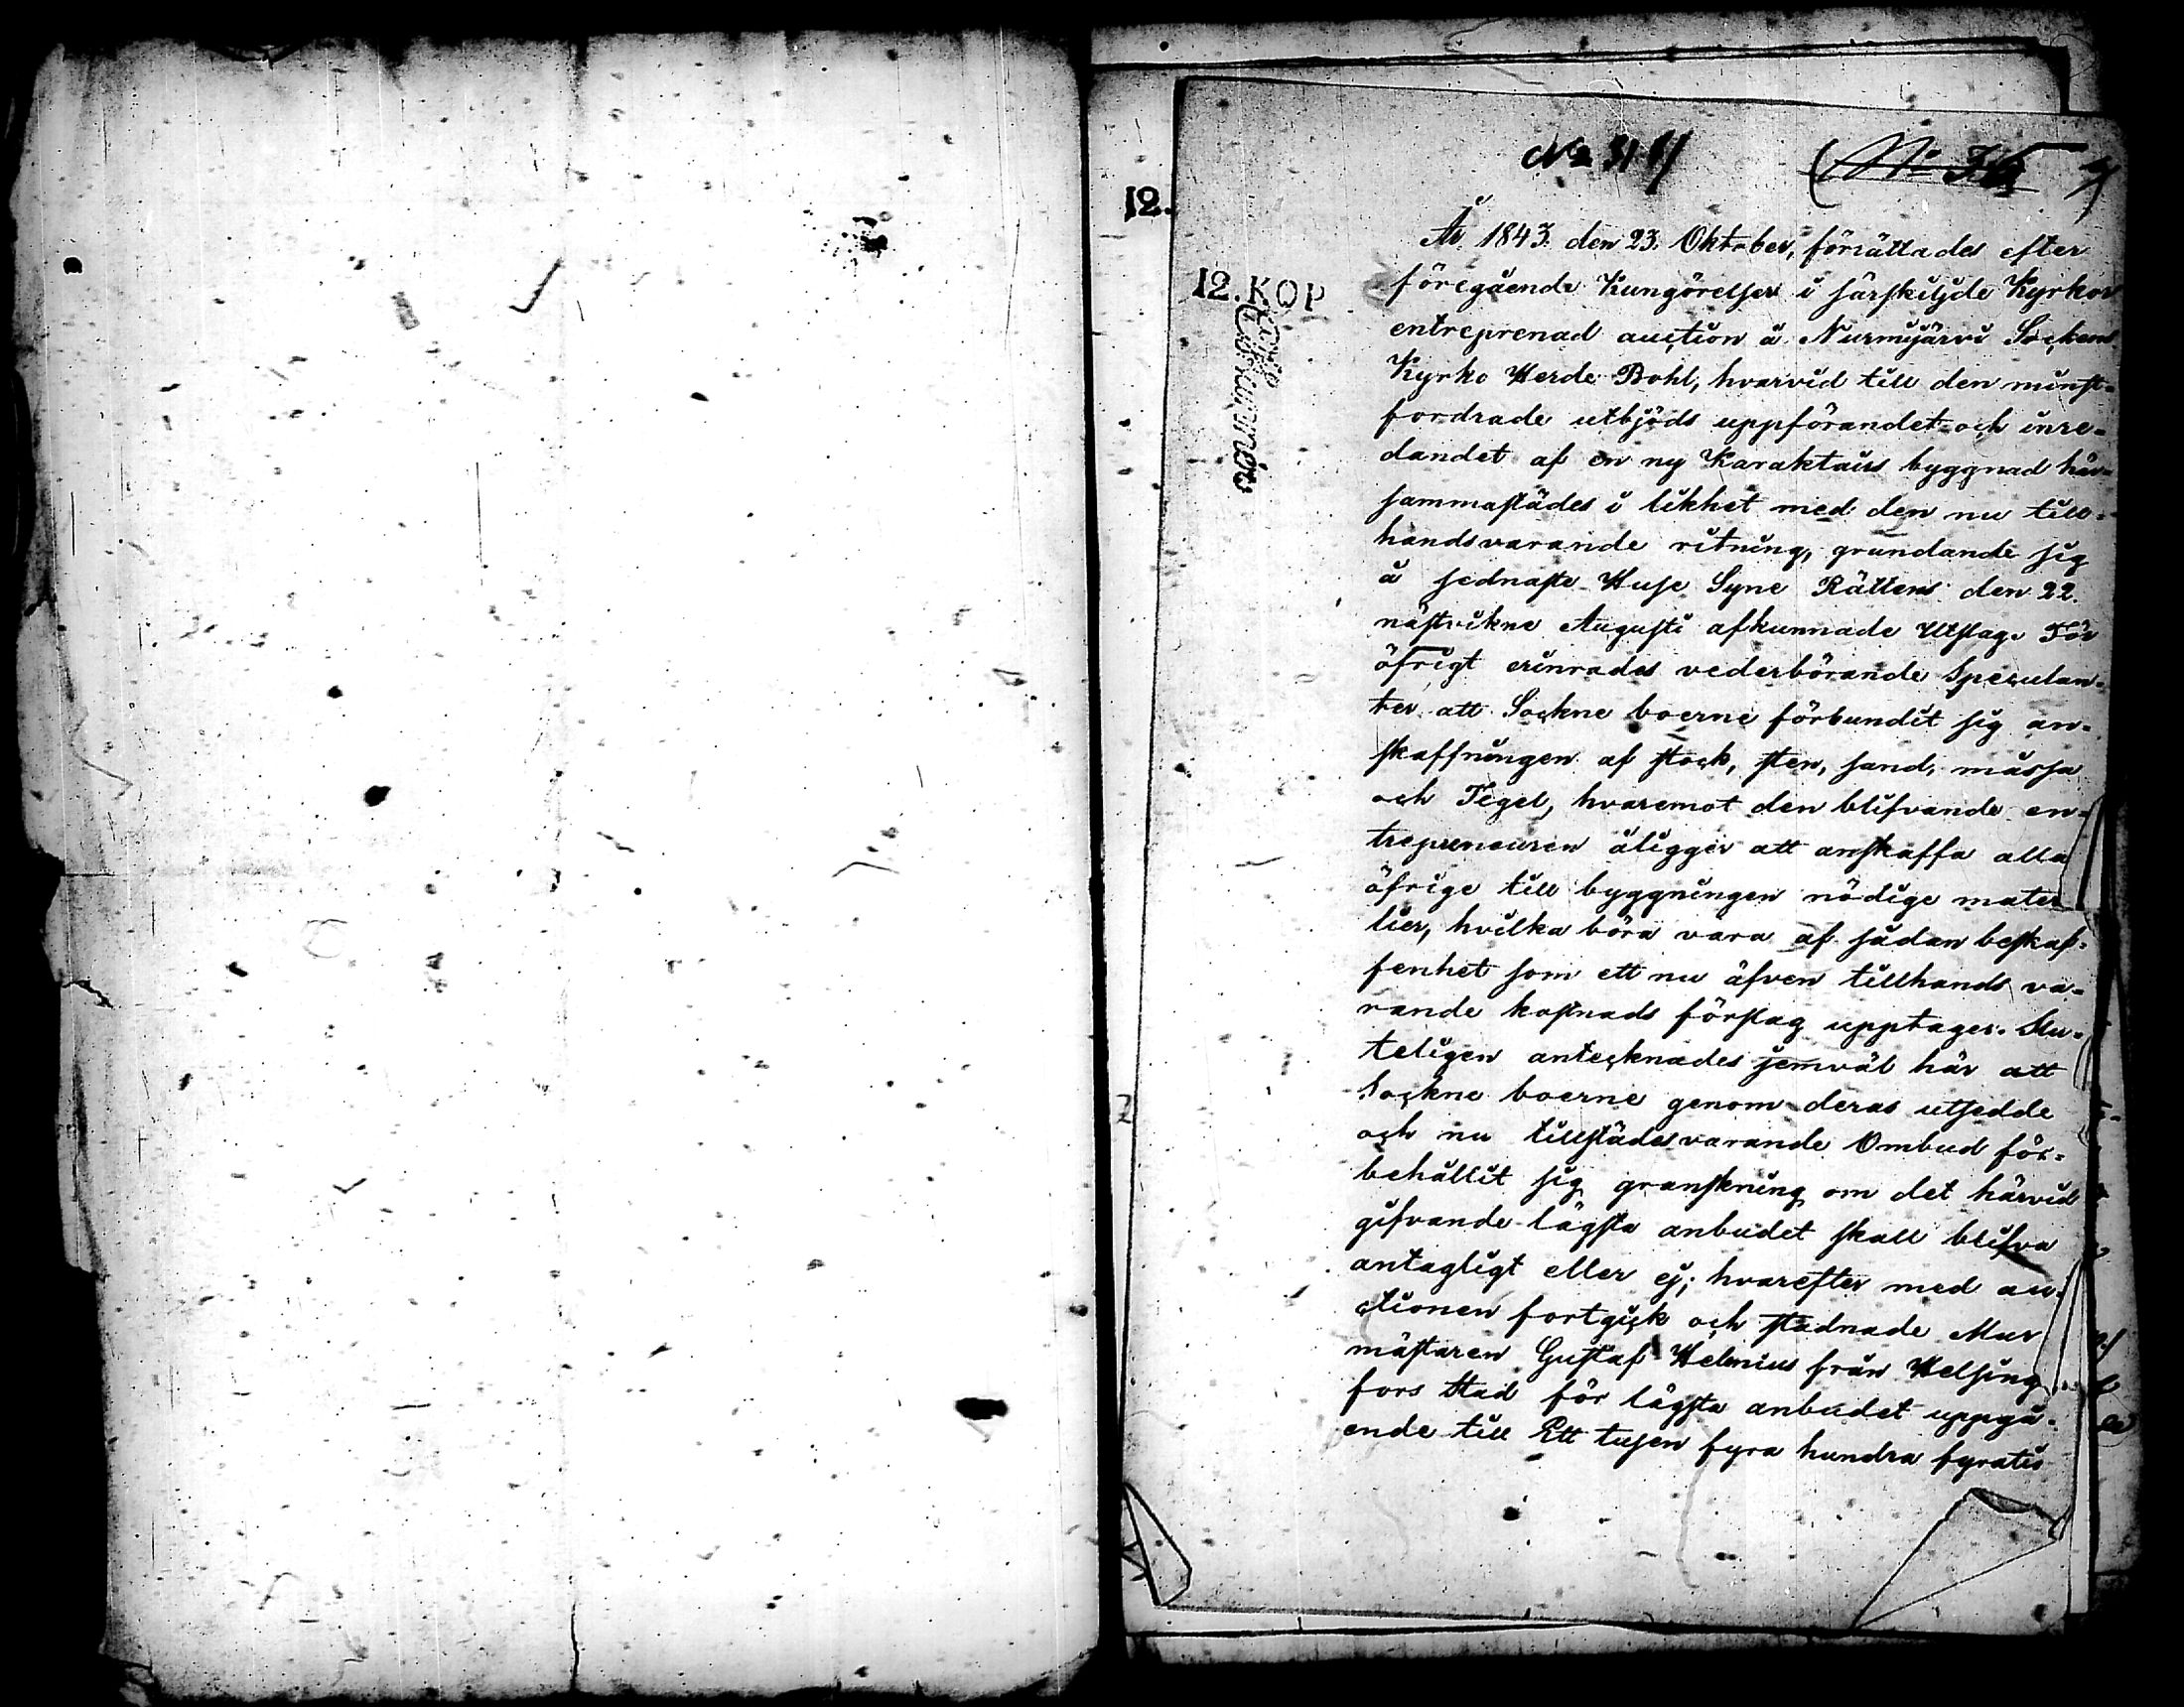 12.
12. KOP
År 1843. den 23. Oktober, förrättades efter
föregående Kungörelser i särskiljde Kyrkor
entreprenad auction å Nurmijärvi Socken
Kyrko Herde Bohl, hvarvid till den minst-
fordrade utbjöds uppförandet och inre-
dandet af en ny Karaktaus byggnad här-
sammastädes i likhet med den nu till-
handsvarande ritning, grundande sig
å sednaste Huse Syne Rättens den 22.
nästvikne Augusti afkunnade Utslag. För
öfrigt erinrades vederbörande Speculan-
ter att Sockne boerne förbundit sig an-
skaffningen af stock, sten, sand, måssa
och Tegel, hvaremot den blifvande en-
trepreneuren åligger att anskaffa alla
öfrige till byggningen nödige mater
lier, hvilka böra vara af sådan beskaf-
fenhet som ett nu äfven tillhands va-
rande kostnads förslag upptager. Slu-
teligen antecknades jemväl här att
Sockne boerne genom deras utsedde
och nu tillstädesvarande Ombud för-
behållit sig granskning om det härvid
gifvande lägsta anbudet skall blifva
antagligt eller ej; hvarefter med au-
ctionen fortgick och stadnade Mur
mästaren Gustaf Helenius från Helsing
fors stad för lägsta anbudet uppgå-
ende till Ett tusen fyra hundra fyratio
2